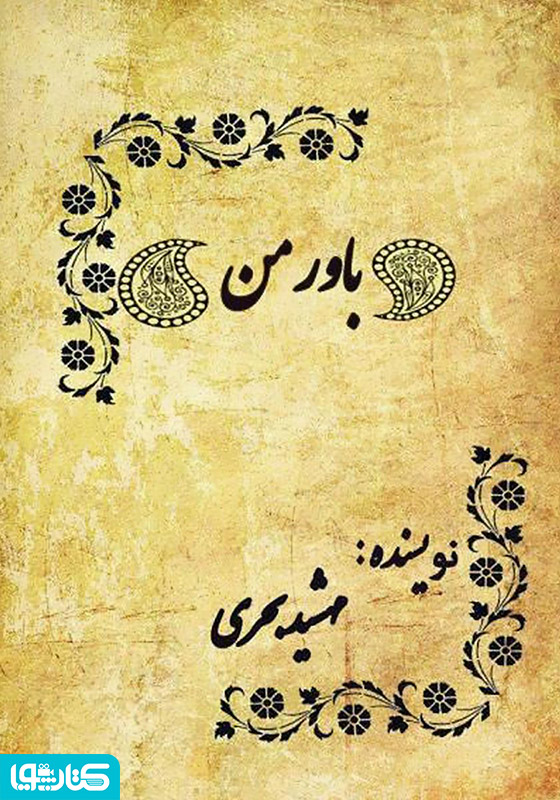 باور من
نویسنده:
مهشید بحری
کتابشویا